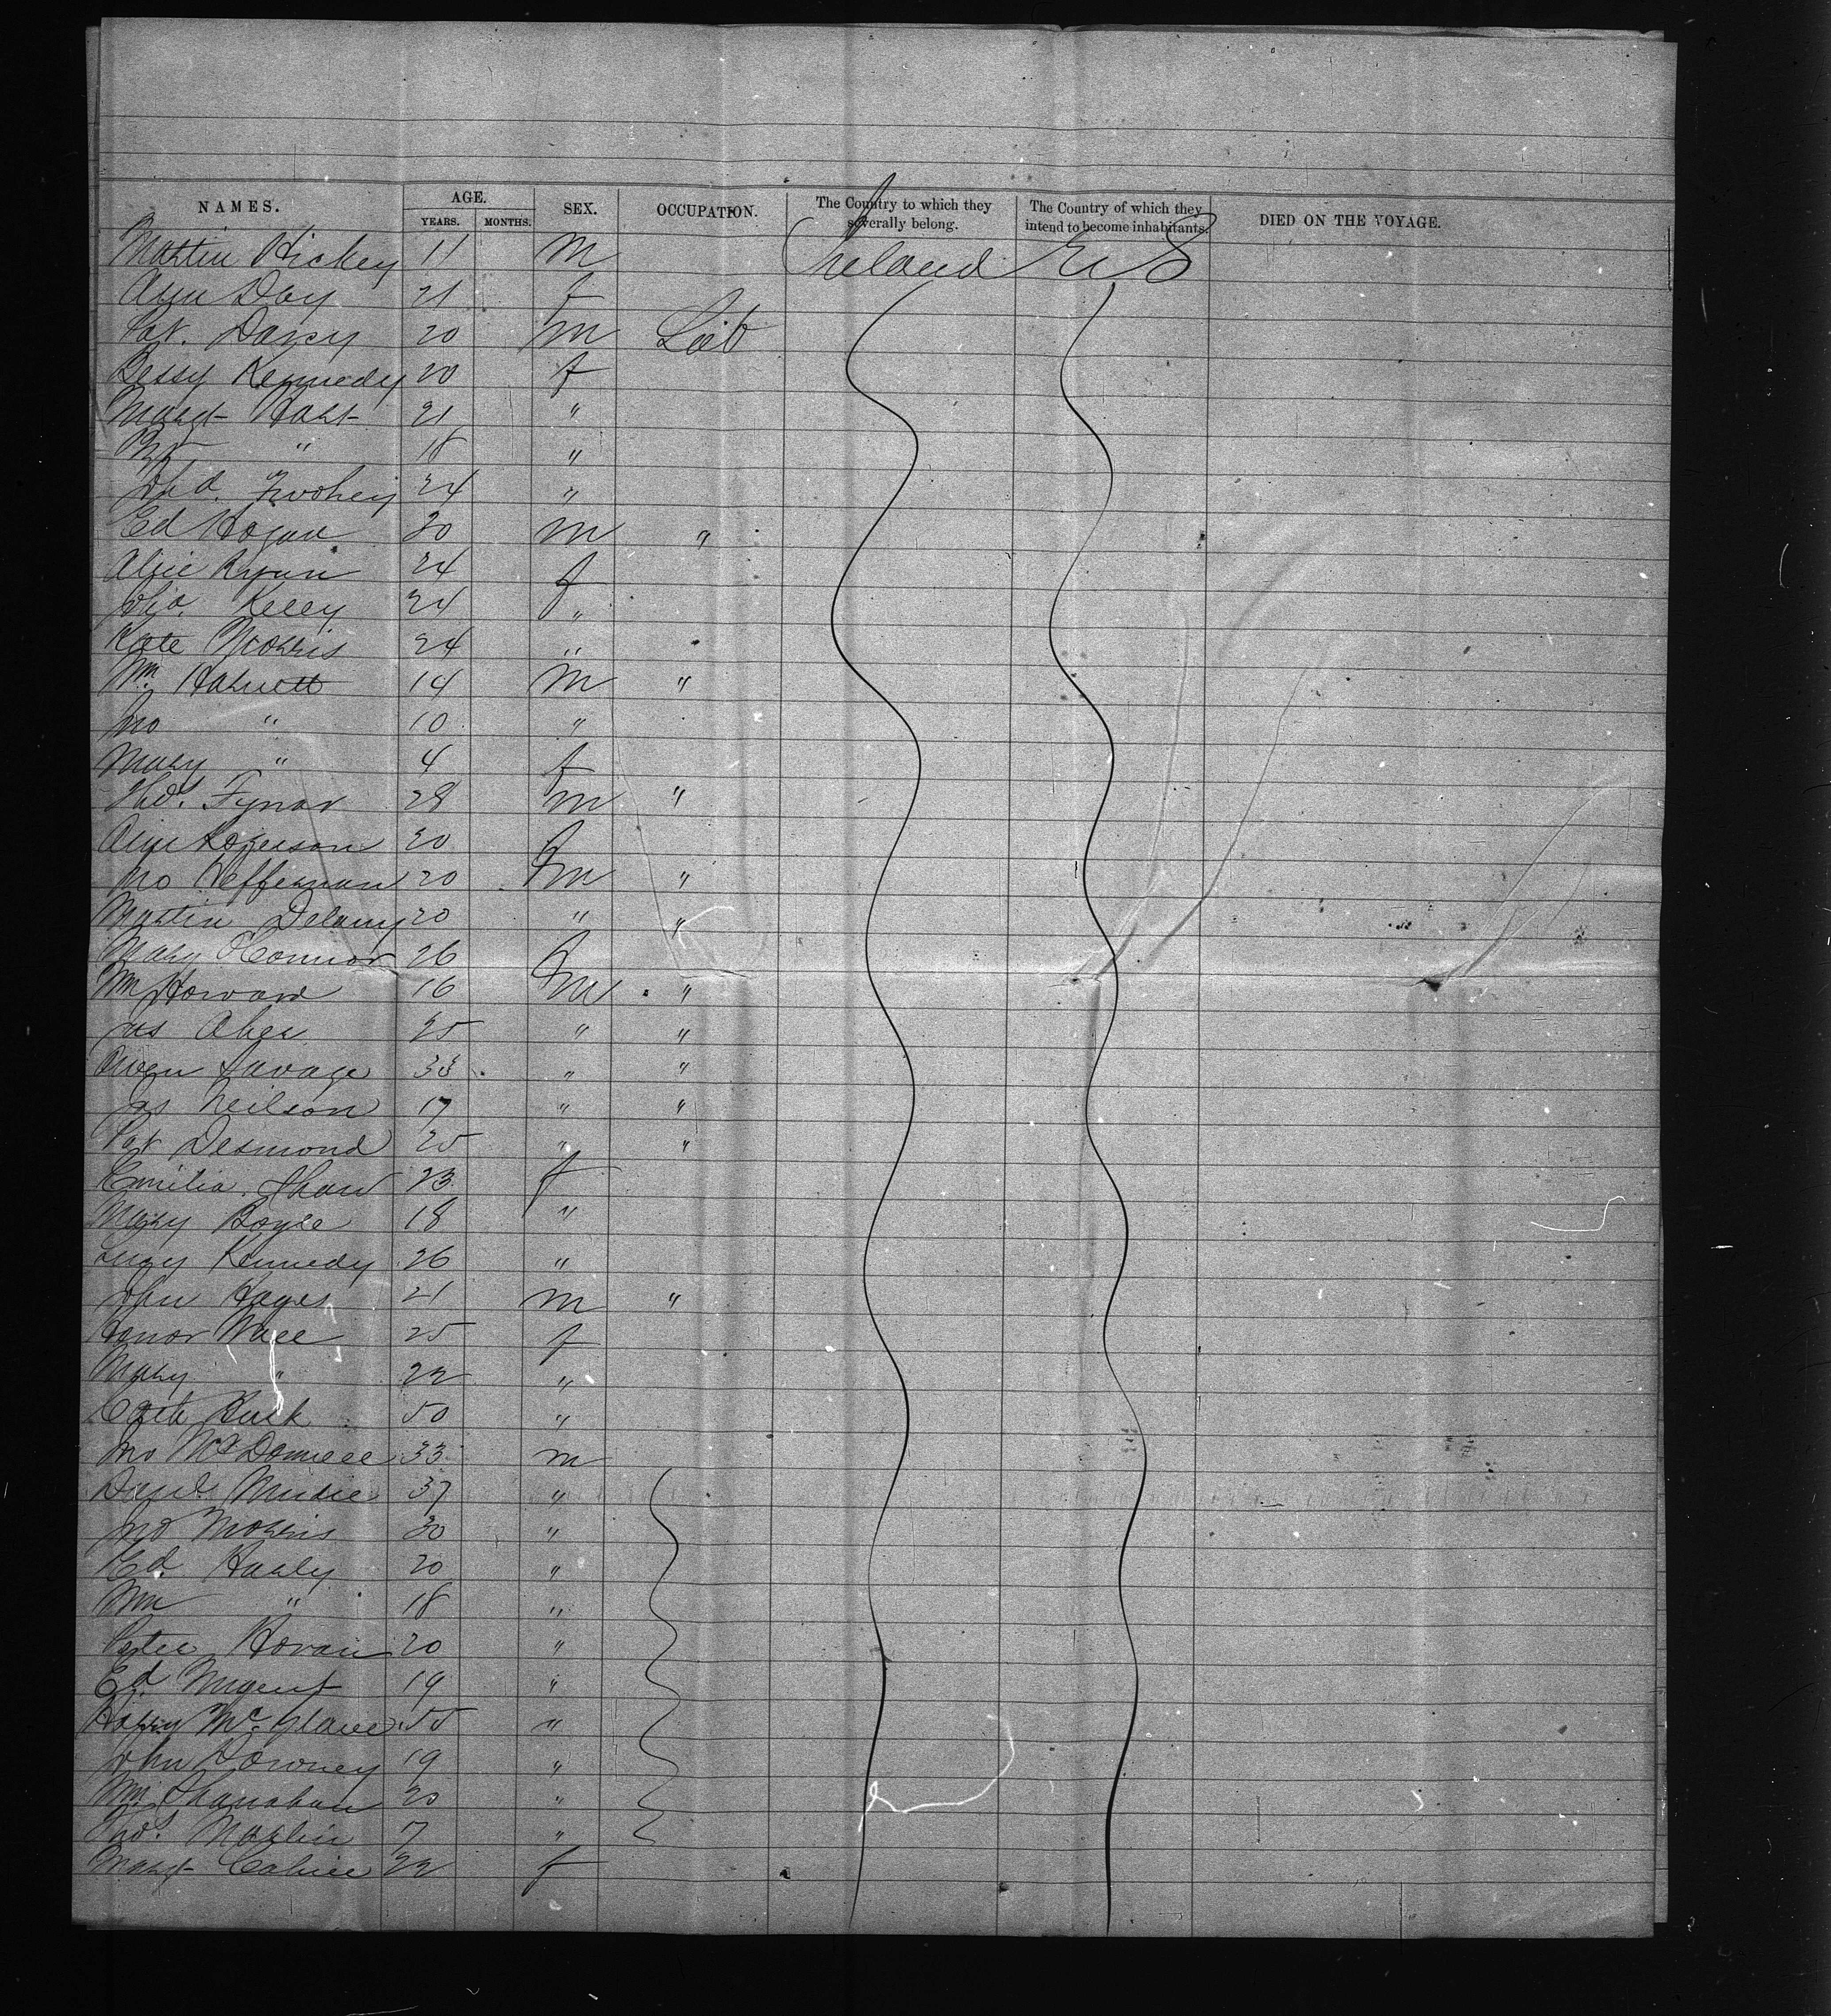 NAMES. AGE. YEARS. MONTHS. SEX. OCCUPATION. The Country to which they severally belong. The Country of which they intend to become inhabitants. DIED ON THE VOYAGE.
Martin Hickey 11 M Ireland U S
Ann Day 21 f
Pat. Darcy 20 M Lab
Bessy Kennedy 20 f
Margt Hart 21 "
" 18 "
Twohey 24 "
Ed Hogan 20 M "
Alice Ryan 24 f
Kelly 24 "
Kate Morris 24 "
Wm Harnett 14 M "
Jno " 10 "
Mary " 4 f
Thos. 28 M "
Rogerson 20 f
Jno Heffernan 20 M "
Martin Delany 20 " "
Mary O'Connor 26 f
Wm Howard 16 M "
Jas Aher 25 " "
Owen Savage 33 " "
Jas Neilson 17 " "
Pat Desmond 25 " "
Emilia Shaw 23 f
Mary Boyle 18 "
Kennedy 26 "
John Hayes 21 M "
Honor Wall 25 f
Mary " 22 "
50 "
Jno McDonnell 33 M
Mudie 37 "
Jno Morris 30 "
Ed. Harly 20 "
Wm " 18 "
Peter 20 "
Ed. Nugent 19 "
Harry Mc. 55 "
John Downey 19 "
Wm Shanahan 20 "
Thos. Martin 17 "
Margt Cahill 22 f